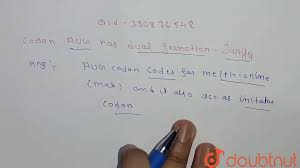 Qid - 330876542
Codon AUG has dual function - Justify
Ans:- AUG codon codes for methionine
(met) and it also act as initator
Codon
doubtnut